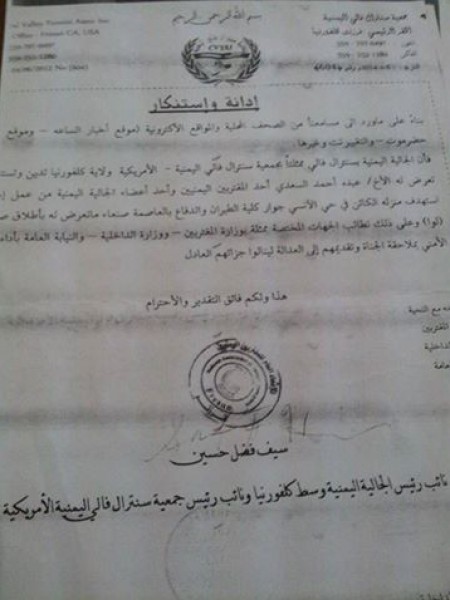 بسم الله الرحمن الرحيم
Valley Yemeni Amer Inc
Office - Fresno CA, USA
جمعية سنترال فالي اليمنية
إدانة وإستنكار
بناءً على ماورد الى مسامعنا من الصحف المحلية والمواقع الالكترونية (موقع أخبار الساعه - وموقع
حضرموت - والتغييرنت وغيرها.
فأن الجالية اليمنية بسنترال فالي ممثلتاً بجمعية سنترال فالي اليمنية - الأمريكية ولاية كلفورنيا تدين
تعرض له الأخ/ عبده أحمد السعدي أحد المغتربين اليمنيين وأحد أعضاء الجالية اليمنية من عمل
استهدف منزله الكائن في حي الآنسي جوار كلية الطيران والدفاع بالعاصمة صنعاء ماتعرض له بأطلاق
(لوا) وعلى ذلك نطالب الجهات المختصة ممثلة بوزارة المغتربين - ووزارة الداخلية - والنيابة العامة
الأمني بملاحقة الجناة وتقديمهم إلى العدالة لينالوا جزائهم العادل
هذا ولكم فائق التقدير والأحترام
مع التحية
المغتربين
الداخلية
سيف فضل حسين
نائب رئيس الجالية اليمنية وسط كلفورنيا ونائب رئيس جمعية سنترال فالي اليمنية الأمريكية